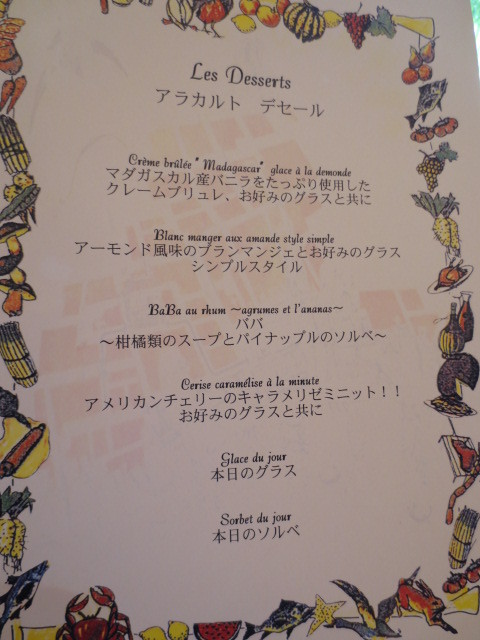 Les Desserts
アラカルト　デセール
Crème brûlée "Madagascar" glace à la demonde
マダガスカル産バニラをたっぷり使用した
クレームブリュレ、お好みのグラスと共に
Blanc manger aux amande style simple
アーモンド風味のブランマンジェとお好みのグラス
シンプルスタイル
BaBa au rhum ～agrumes et l'ananas～
ババ
～柑橘類のスープとパイナップルのソルベ～
Cerise caramélise à la minute
アメリカンチェリーのキャラメリゼミニット！！
お好みのグラスと共に
Glace du jour
本日のグラス
Sorbet du jour
本日のソルベ